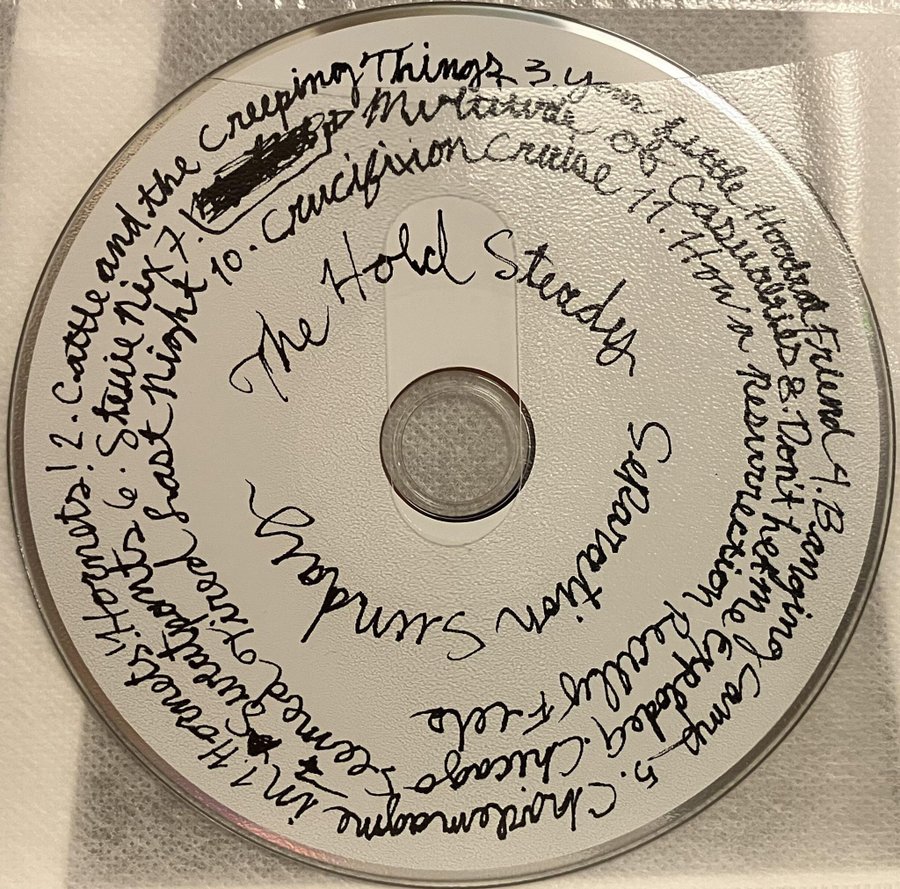 The Hold Steady
Separation Sunday
1. Hornets! Hornets! 2. Cattle and the Creeping Things 3. Your Little Hoodrat Friend 4. Banging Camp 5. Charlemagne in
Sweatpants 6. Stevie Nix 7. Multitude of Casualties 8. Don't Let me Explode 9. Chicago
Seemed Tired Last Night 10. Crucifixion Cruise 11. How a Resurrection Really Feels